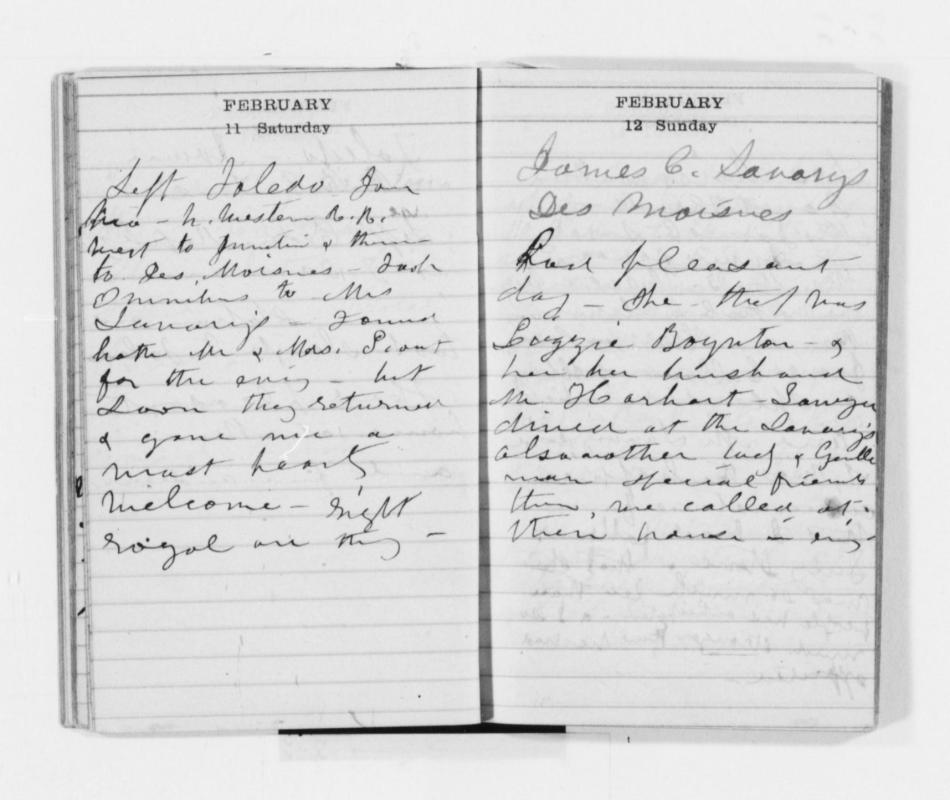 FEBRUARY
11 Saturday
Left Toledo Iowa
via - N. Western R.R.
west to & then
to Des Moisnes - Took
Omnibus to Mrs
Savary's - Found
both Mr & Mrs. out
for the eving - but
soon they returned
& gave me a
most hearty
welcome - right
royal are they -
FEBRUARY
12 Sunday
James C. Savarys
Des Moisnes
Had pleasant
day - the was
Lizzie Boynton - &
her husband
Mr Harbert - Lawyer
dined at the Savarys
also another lady & Gentle
man special friends
then, we called at
their house in eving -